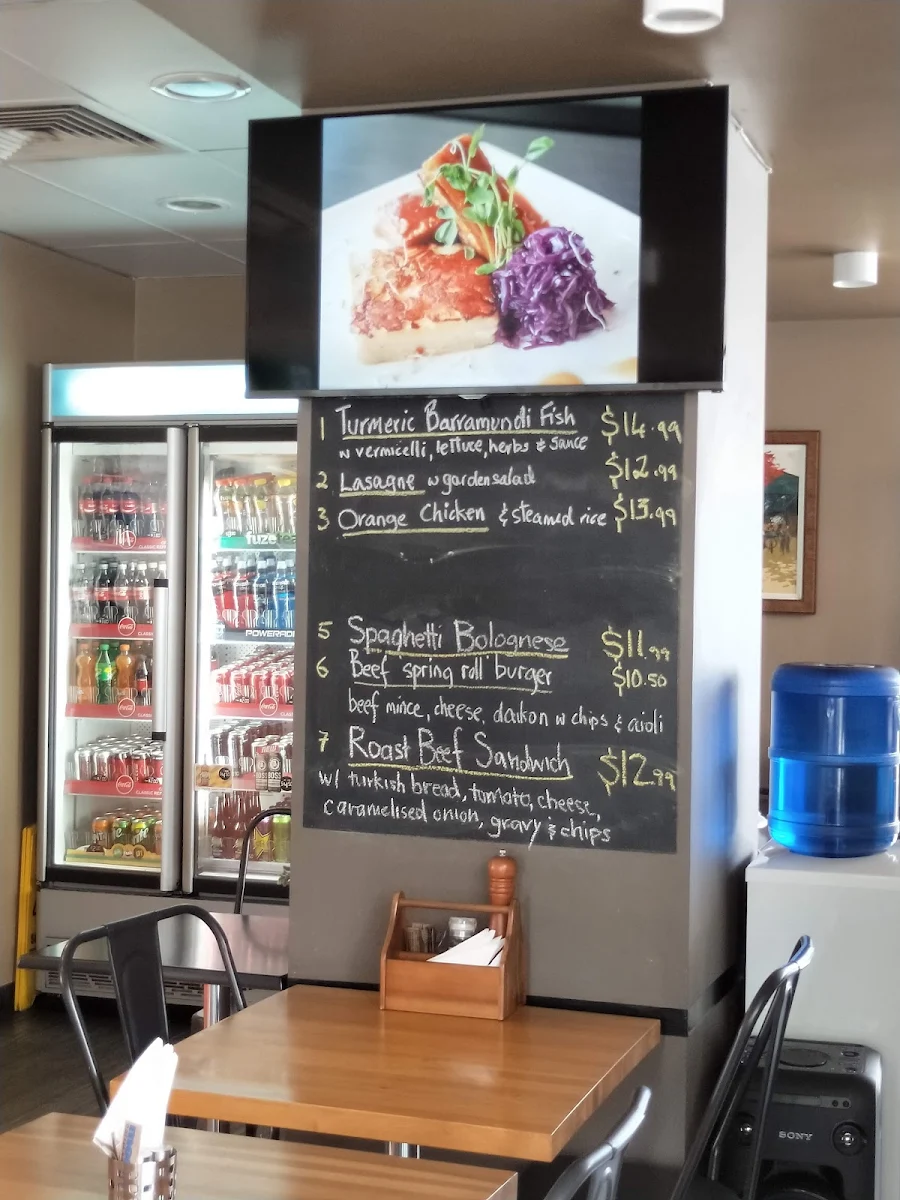 1 Turmeric Barramundi Fish $14.99
w vermicelli, lettuce, herbs & sauce
2 Lasagne w garden salad $12.99
3 Orange Chicken & steamed rice $13.99
5 Spaghetti Bolognese $11.99
6 Beef spring roll burger $10.50
beef mince, cheese, daikon w chips & aioli
7 Roast Beef Sandwich $12.99
w/ turkish bread, tomato, cheese,
caramelised onion, gravy & chips
fuze
POWERADE
Coca-Cola
Coca-Cola
Coca-Cola
BOSS
SONY